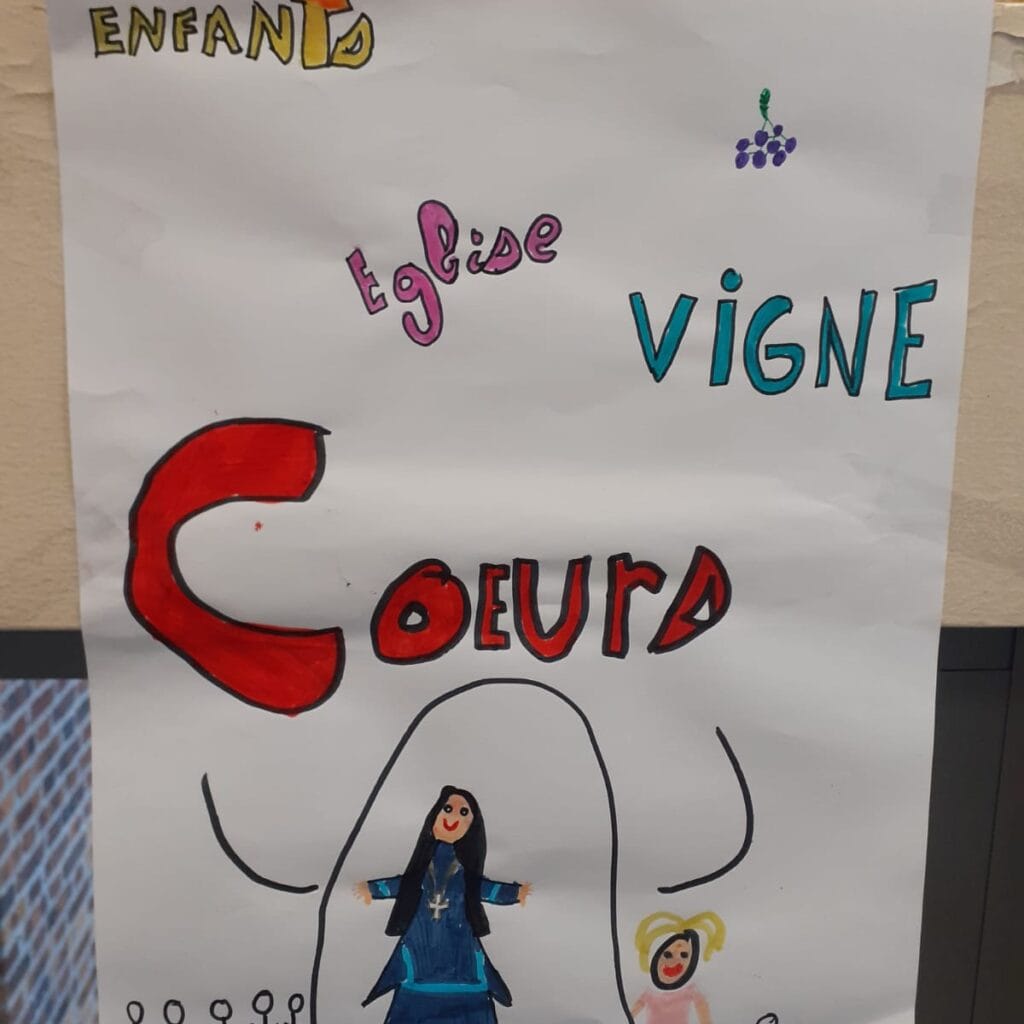 ENFANTS
Eglise
VIGNE
Coeurs